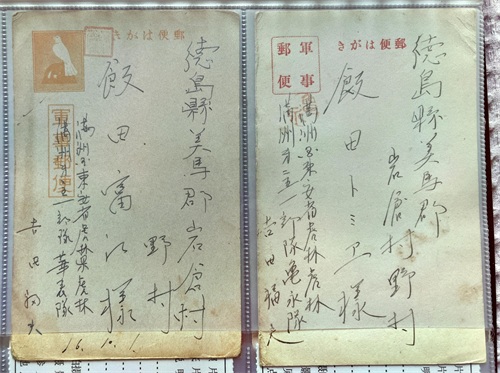 郵便はがき
軍事郵便
徳島縣美馬郡岩倉村
野村
飯田富江様
満洲國東安省虎林縣虎林
満洲第二五一部隊華表隊
吉田
16.10.1
郵便はがき
軍事
郵便
徳島縣美馬郡
岩倉村野村
飯田トミヱ様
満洲國東安省虎林虎林
満洲第二五一部隊亀永隊
吉田福